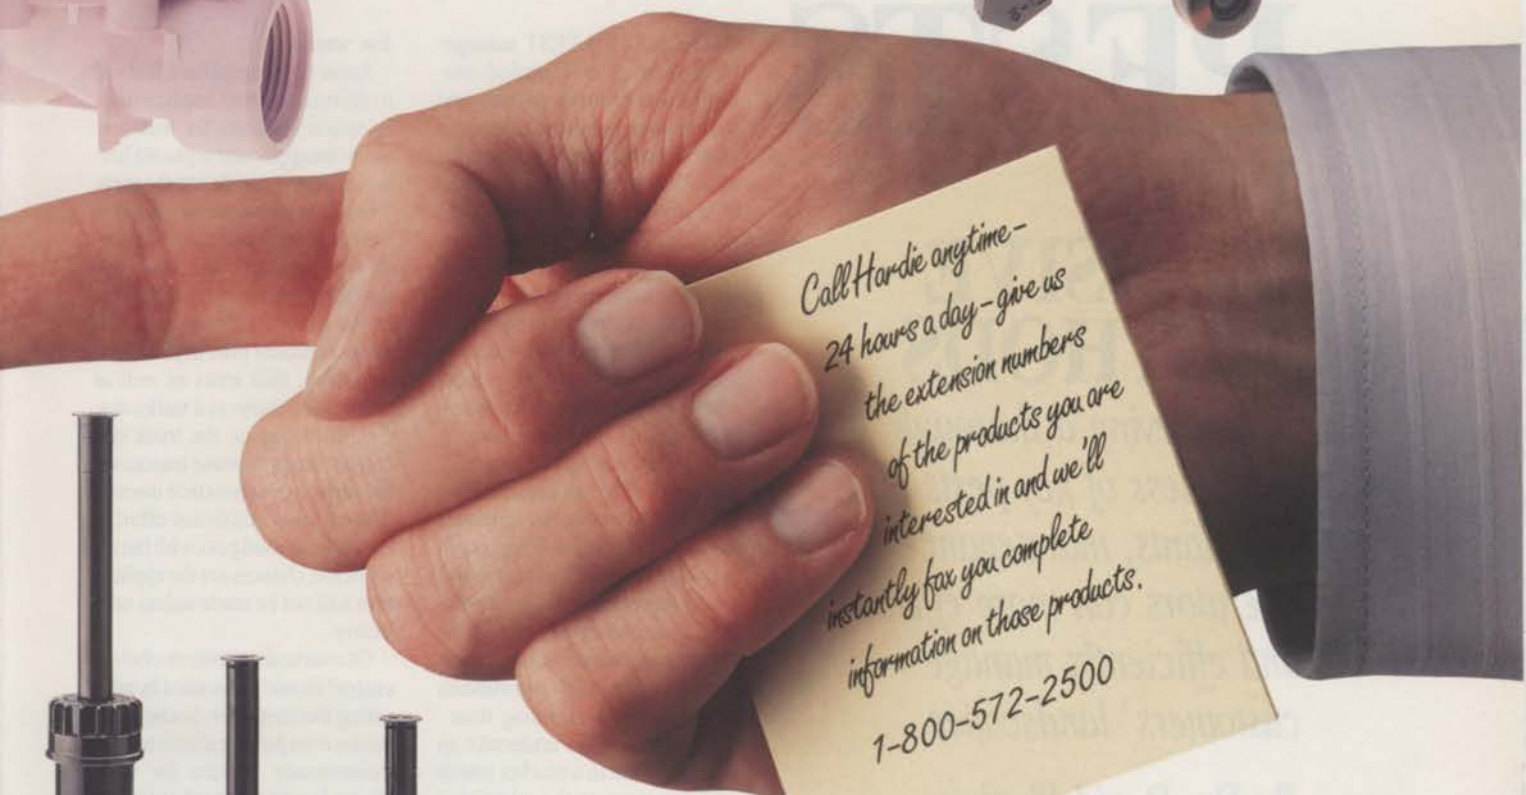 Call Hardie anytime–
24 hours a day – give us
the extension numbers
of the products you are
interested in and we'll
instantly fax you complete
information on those products.
1-800-572-2500